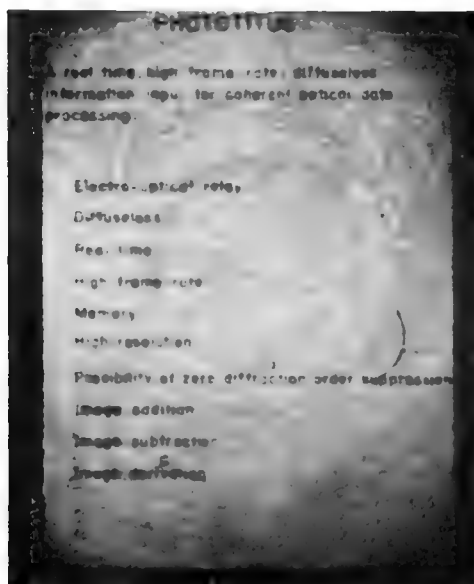 PHOTOTITUS
A real time, high frame rate, diffuseless
information input for coherent optical data
processing.
Electro-optical relay
Diffuseless
Real time
High frame rate
Memory
High resolution
Possibility of zero diffraction order suppression
Image addition
Image subtraction
Image